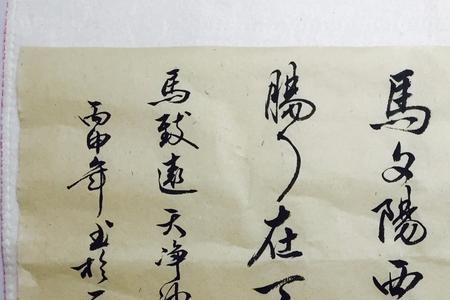 馬夕陽西
腸人在天
馬致遠天净沙
丙申年書於